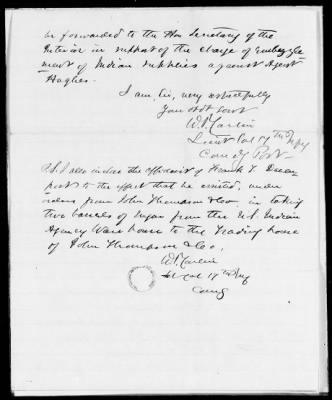 be forwarded to the Hon Secretary of the
Interior in support of the charge of Embezzle
ment of Indian supplies against Agent
Hughes.
I am Sir, very respectfully
Your obdt Servt
W.P. Carlin
Lieut Col 17th Infy
Comdg Post
P.S. I also inclose the affidavit of Frank F.
port to the effect that he assisted, under
orders from John Thompson & Co in taking
two barrels of sugar from the U.S. Indian
Agency Ware house to the Trading house
of John Thompson & Co,
W.P. Carlin
Lt Col 17th Inf
Comg